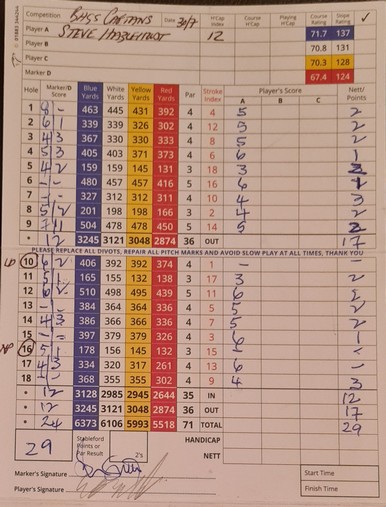 Competition BASS CAPTAINS Date 30/7 H'Cap Index Course H'Cap Playing H'Cap Course Rating Slope Rating ✓
Player A STEVE 12 71.7 137
Player B 70.8 131
Player C 70.3 128
Marker D 67.4 124
Hole Marker/B Score Blue Yards White Yards Yellow Yards Red Yards Par Stroke Index Player's Score Nett/Points
A B C
1 8 - 463 445 431 392 4 4 5 2
2 6 1 339 339 326 302 4 12 5 2
3 4 3 367 330 330 333 4 8 5 2
4 5 3 405 403 371 373 4 6 6 1
5 4 2 159 159 145 131 3 18 3
6 - - 480 457 457 416 5 16 6
7 - - 327 312 312 311 4 10 4 3
8 5 1 201 198 198 166 3 2 4 2
9 504 478 478 450 5 14 5 2
12 3245 3121 3048 2874 36 OUT 17
PLEASE REPLACE ALL DIVOTS, REPAIR ALL PITCH MARKS AND AVOID SLOW PLAY AT ALL TIMES, THANK YOU
10 6 2 406 392 392 374 4 1 - -
11 5 1 165 155 132 138 3 17 3 2
12 6 2 510 498 495 439 5 11 6 2
13 - - 384 364 364 336 4 5 5 2
14 4 3 386 366 366 336 4 7 5 2
15 - - 397 379 379 326 4 3 6 1
NP 16 5 1 178 156 145 132 3 15 - -
17 4 3 334 320 317 261 4 13 6 1
18 - 368 355 355 302 4 9 4 3
12 3128 2985 2945 2644 35 IN 12
12 3245 3121 3048 2874 36 OUT 17
24 6373 6106 5993 5518 71 TOTAL 29
29 Stableford Points or Par Result 2's HANDICAP
NETT
Marker's Signature
Player's Signature
Start Time
Finish Time